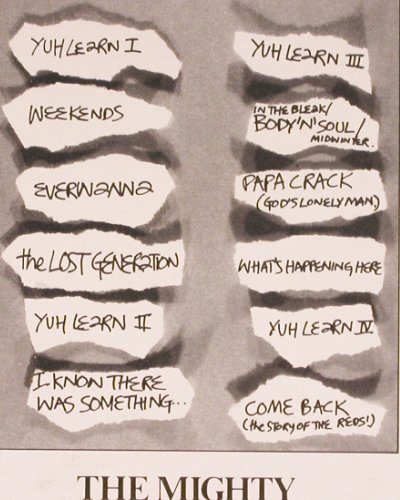 YUH LEARN I
WEEKENDS
EVERWANNA
the LOST GENERATION
YUH LEARN II
I KNOW THERE
WAS SOMETHING...
YUH LEARN III
IN THE BLEAK/
BODY'N'SOUL/
MIDWINTER.
PAPA CRACK
(GOD'S LONELY MAN,)
WHAT'S HAPPENING HERE
YUH LEARN IV
COME BACK
(the STORY OF THE REDS!)
THE MIGHTY